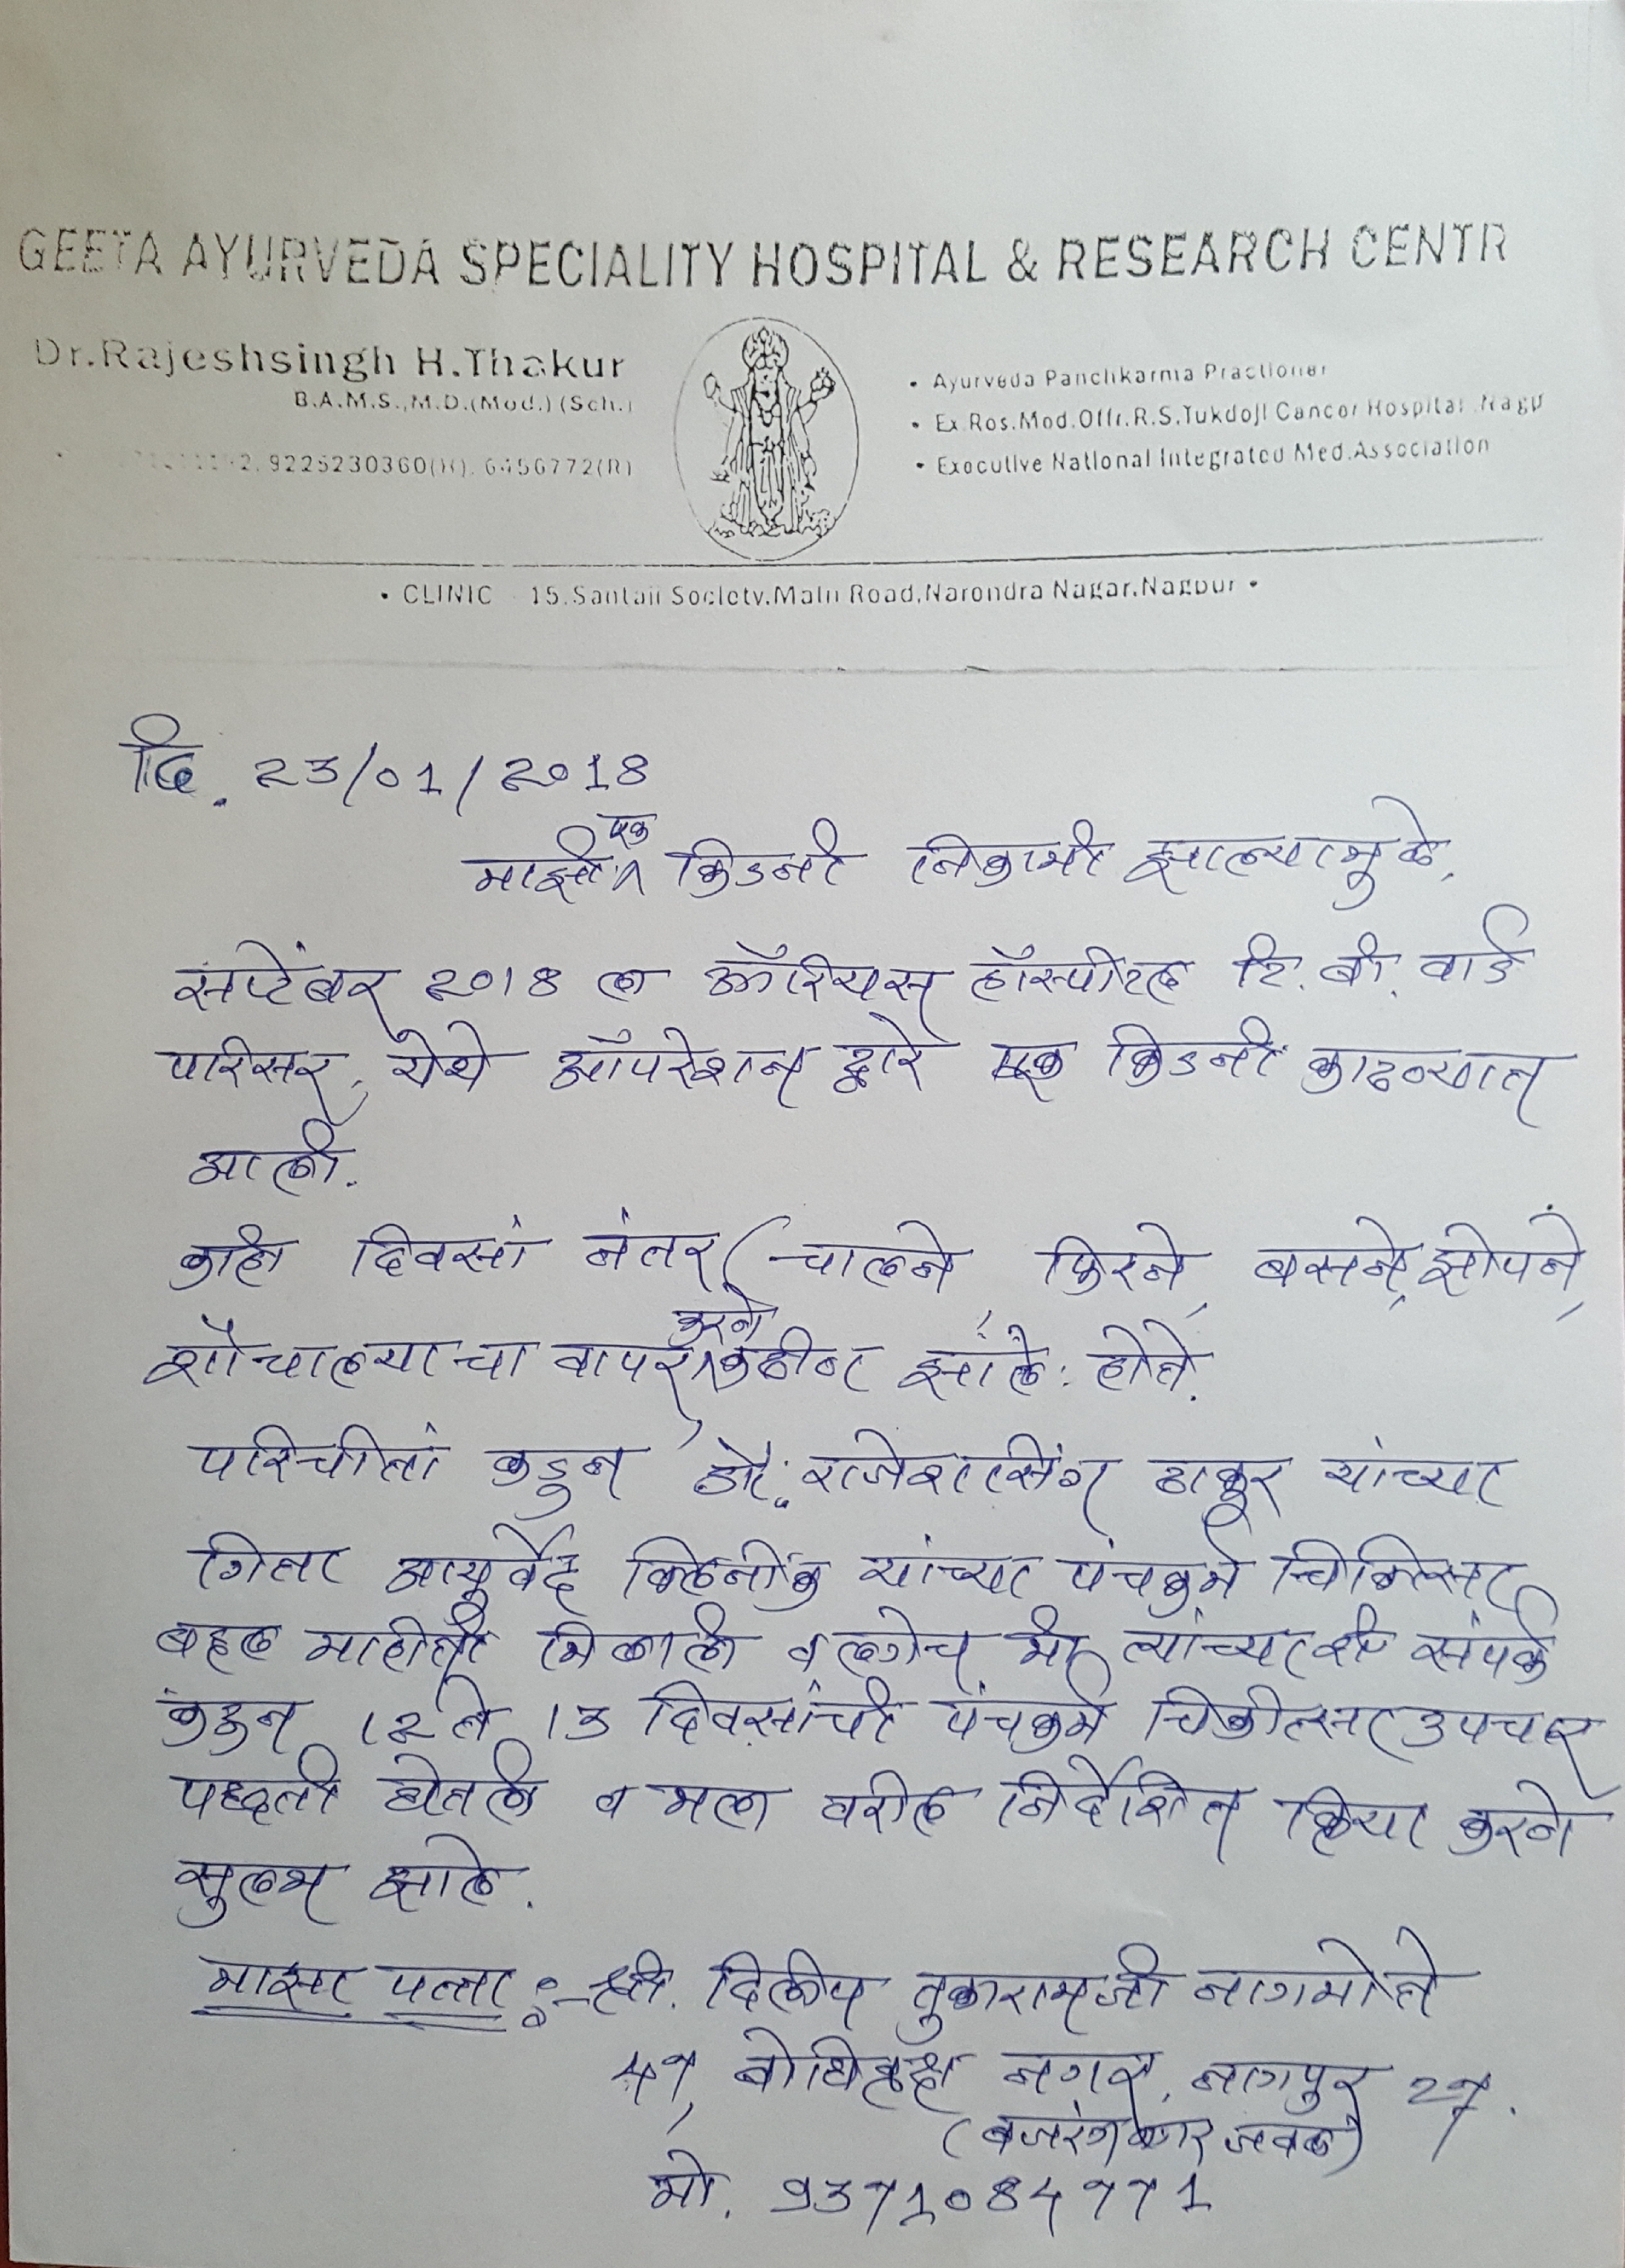 GEETA AYURVEDA SPECIALITY HOSPITAL & RESEARCH CENTR
Dr.Rajeshsingh H.Thakur
B.A.M.S.,M.D.(Med.) (Sch.)
2, 9225230360(H), 6456772(R)
• Ayurveda Panchkarma Practioner
• Ex.Res.Med.Offr.R.S.Tukdoji Cancer Hospital .Nagp
• Executive National Integrated Med.Association
• CLINIC 15,Santaji Society,Main Road,Narendra Nagar,Nagpur •
दि. 23/01/2018
माझी एक किडनी निकामी झाल्यामुळे,
सप्टेंबर 2018 ला ऑरियस हॉस्पीटल टि. बी. वार्ड
परिसर, येथे ऑपरेशन द्वारे एक किडनी काढण्यात
आली.
काही दिवसां नंतर (चालने, फिरने, बसने, झोपने,
शौचालयाचा वापर करने कठीन झाले: होते.
परिचीतां कडुन डॉ. राजेशसिंग ठाकूर यांच्या
गिता आयुर्वेद क्लिनींक यांच्या पंचकर्म चिकित्सा
बद्दल माहीती मिळाली व लगेच मी त्यांच्याशी संपर्क
करुन 12 ते 13 दिवसांची पंचकर्म चिकीत्सा उपचार
पद्धती घेतली व मला वरील निर्देशित क्रिया करने
सुलभ झाले.
माझा पत्ता :- श्री. दिलीप तुकारामजी नागमोते
47, बोधिवृक्ष नगर, नागपुर 27.
(बजरंग नगर जवळ)
मो. 9371084771